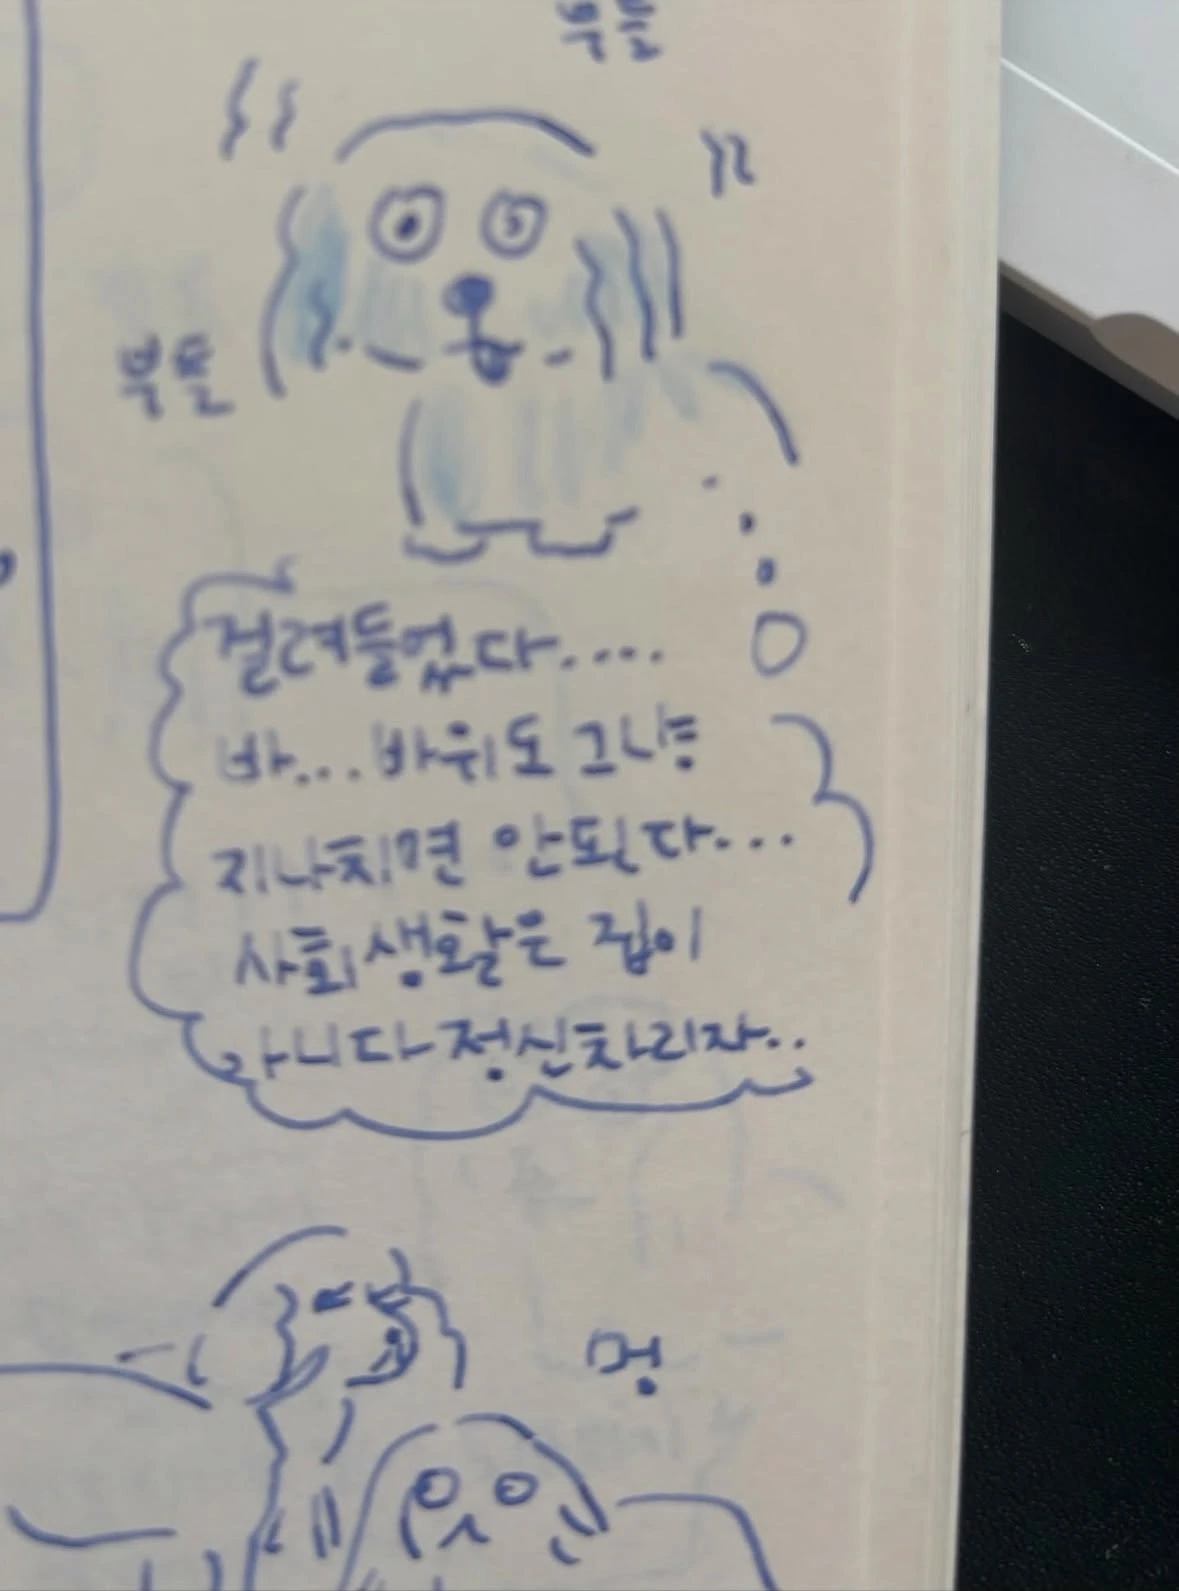 부들
부들
걸려들었다....
바...바위도 그냥
지나치면 안된다...
사회생활은 집이
아니다 정신차리자..
멍